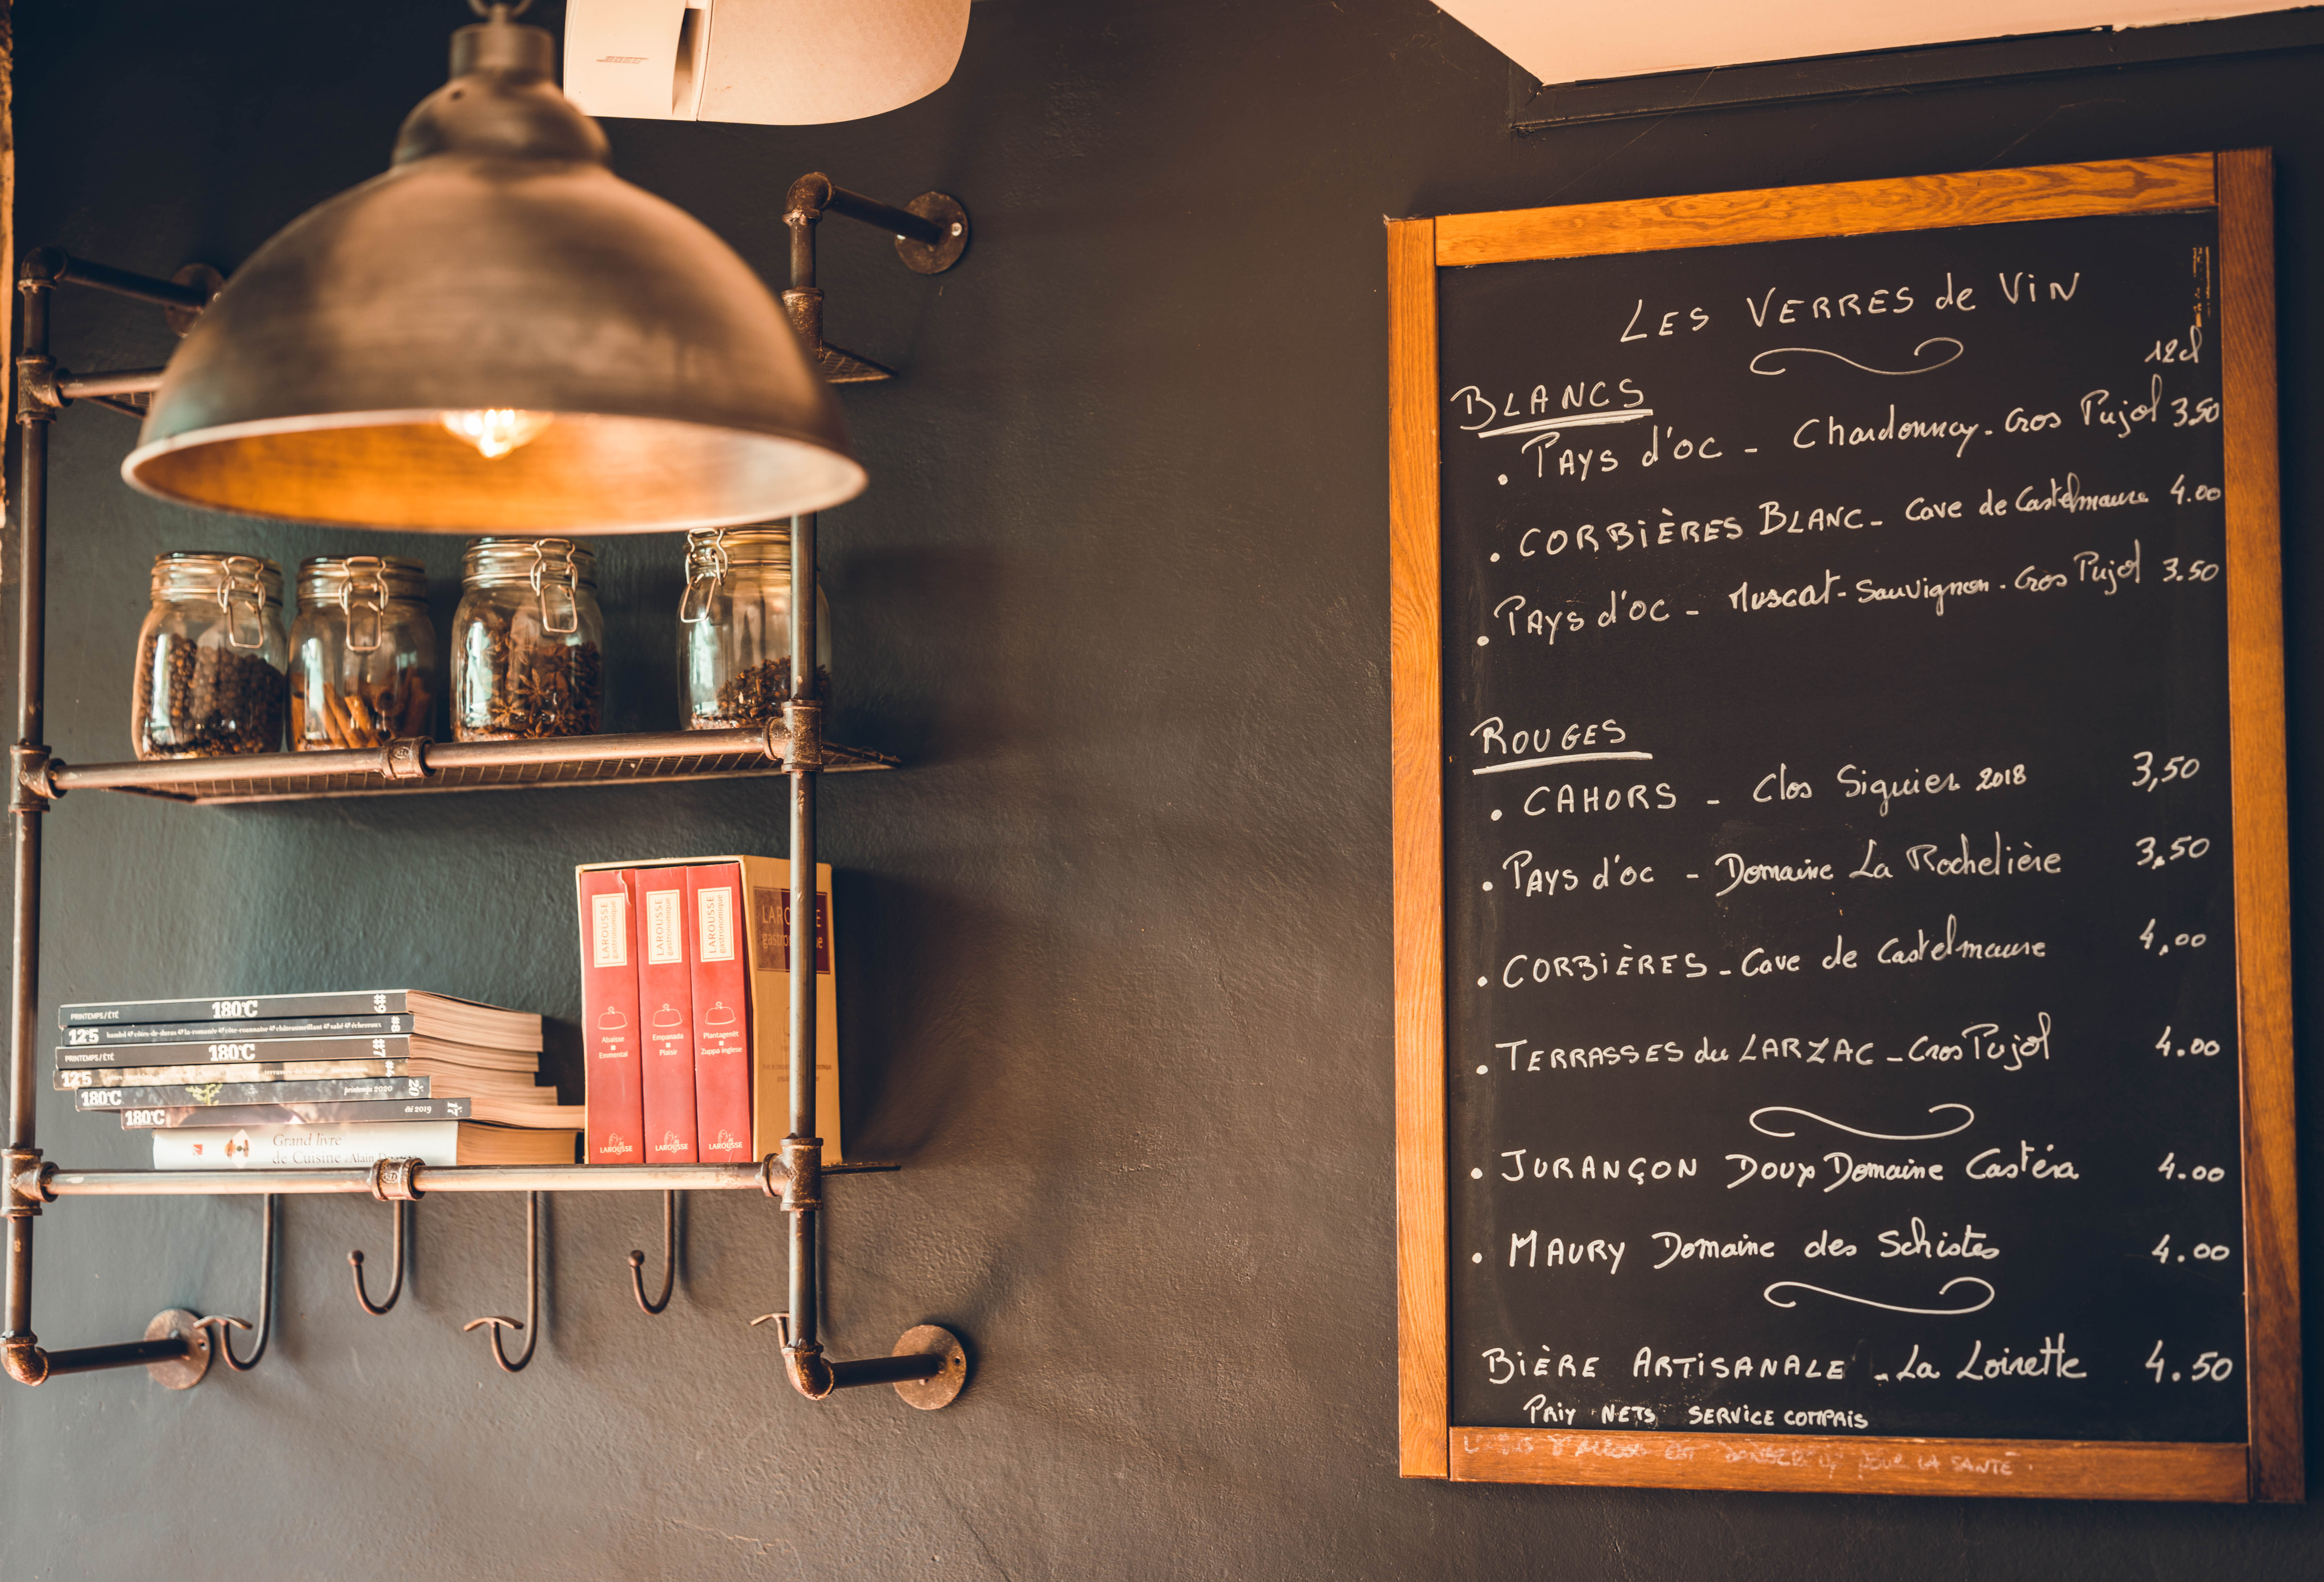 BOSE
PRINTEMPS/ÉTÉ 180°C #9
12°5 #8
PRINTEMPS/ÉTÉ 180°C #7
12°5
180°C printemps 2020 20
180°C été 2019 17
Grand livre
de Cuisine Alain
LAROUSSE
gastronomique
Abaisse
Emmental
LAROUSSE
LAROUSSE
gastronomique
Empanada
Plaisir
LAROUSSE
LAROUSSE
gastronomique
Plantagenêt
Zuppa inglese
LAROUSSE
LES VERRES de ViN
12cl
BLANCS
. PAYS d'OC - Chardonnay - Gros Pujol 3.50
. CORBiÈRES BLANC - Cave de Castelmaure 4.00
. PAYS d'OC - Muscat - Sauvignon - Gros Pujol 3.50
ROUGES
. CAHORS - Clos Siguier 2018 3,50
. PAYS d'OC - Domaine La Rochelière 3,50
. CORBiÈRES - Cave de Castelmaure 4,00
. TERRASSES du LARZAC - Cros Pujol 4.00
. JURANÇON Doux Domaine Castéra 4.00
. MAURY Domaine des Schistes 4.00
BiÈRE ARTiSANALE - La Loirette 4.50
PRiX NETS SERVICE COMPRIS
POUR LA SANTÉ.